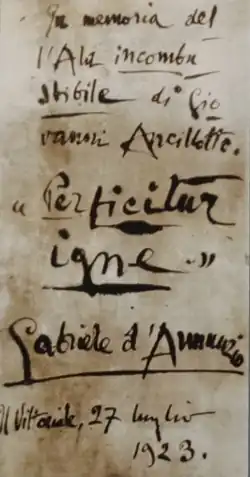 In memoria del
l'Ala incombu
stibile di Gio
vanni Ancillotto.
"Perficitur
igne."
Gabriele d'Annunzio
Il Vittoriale, 27 luglio
1923.